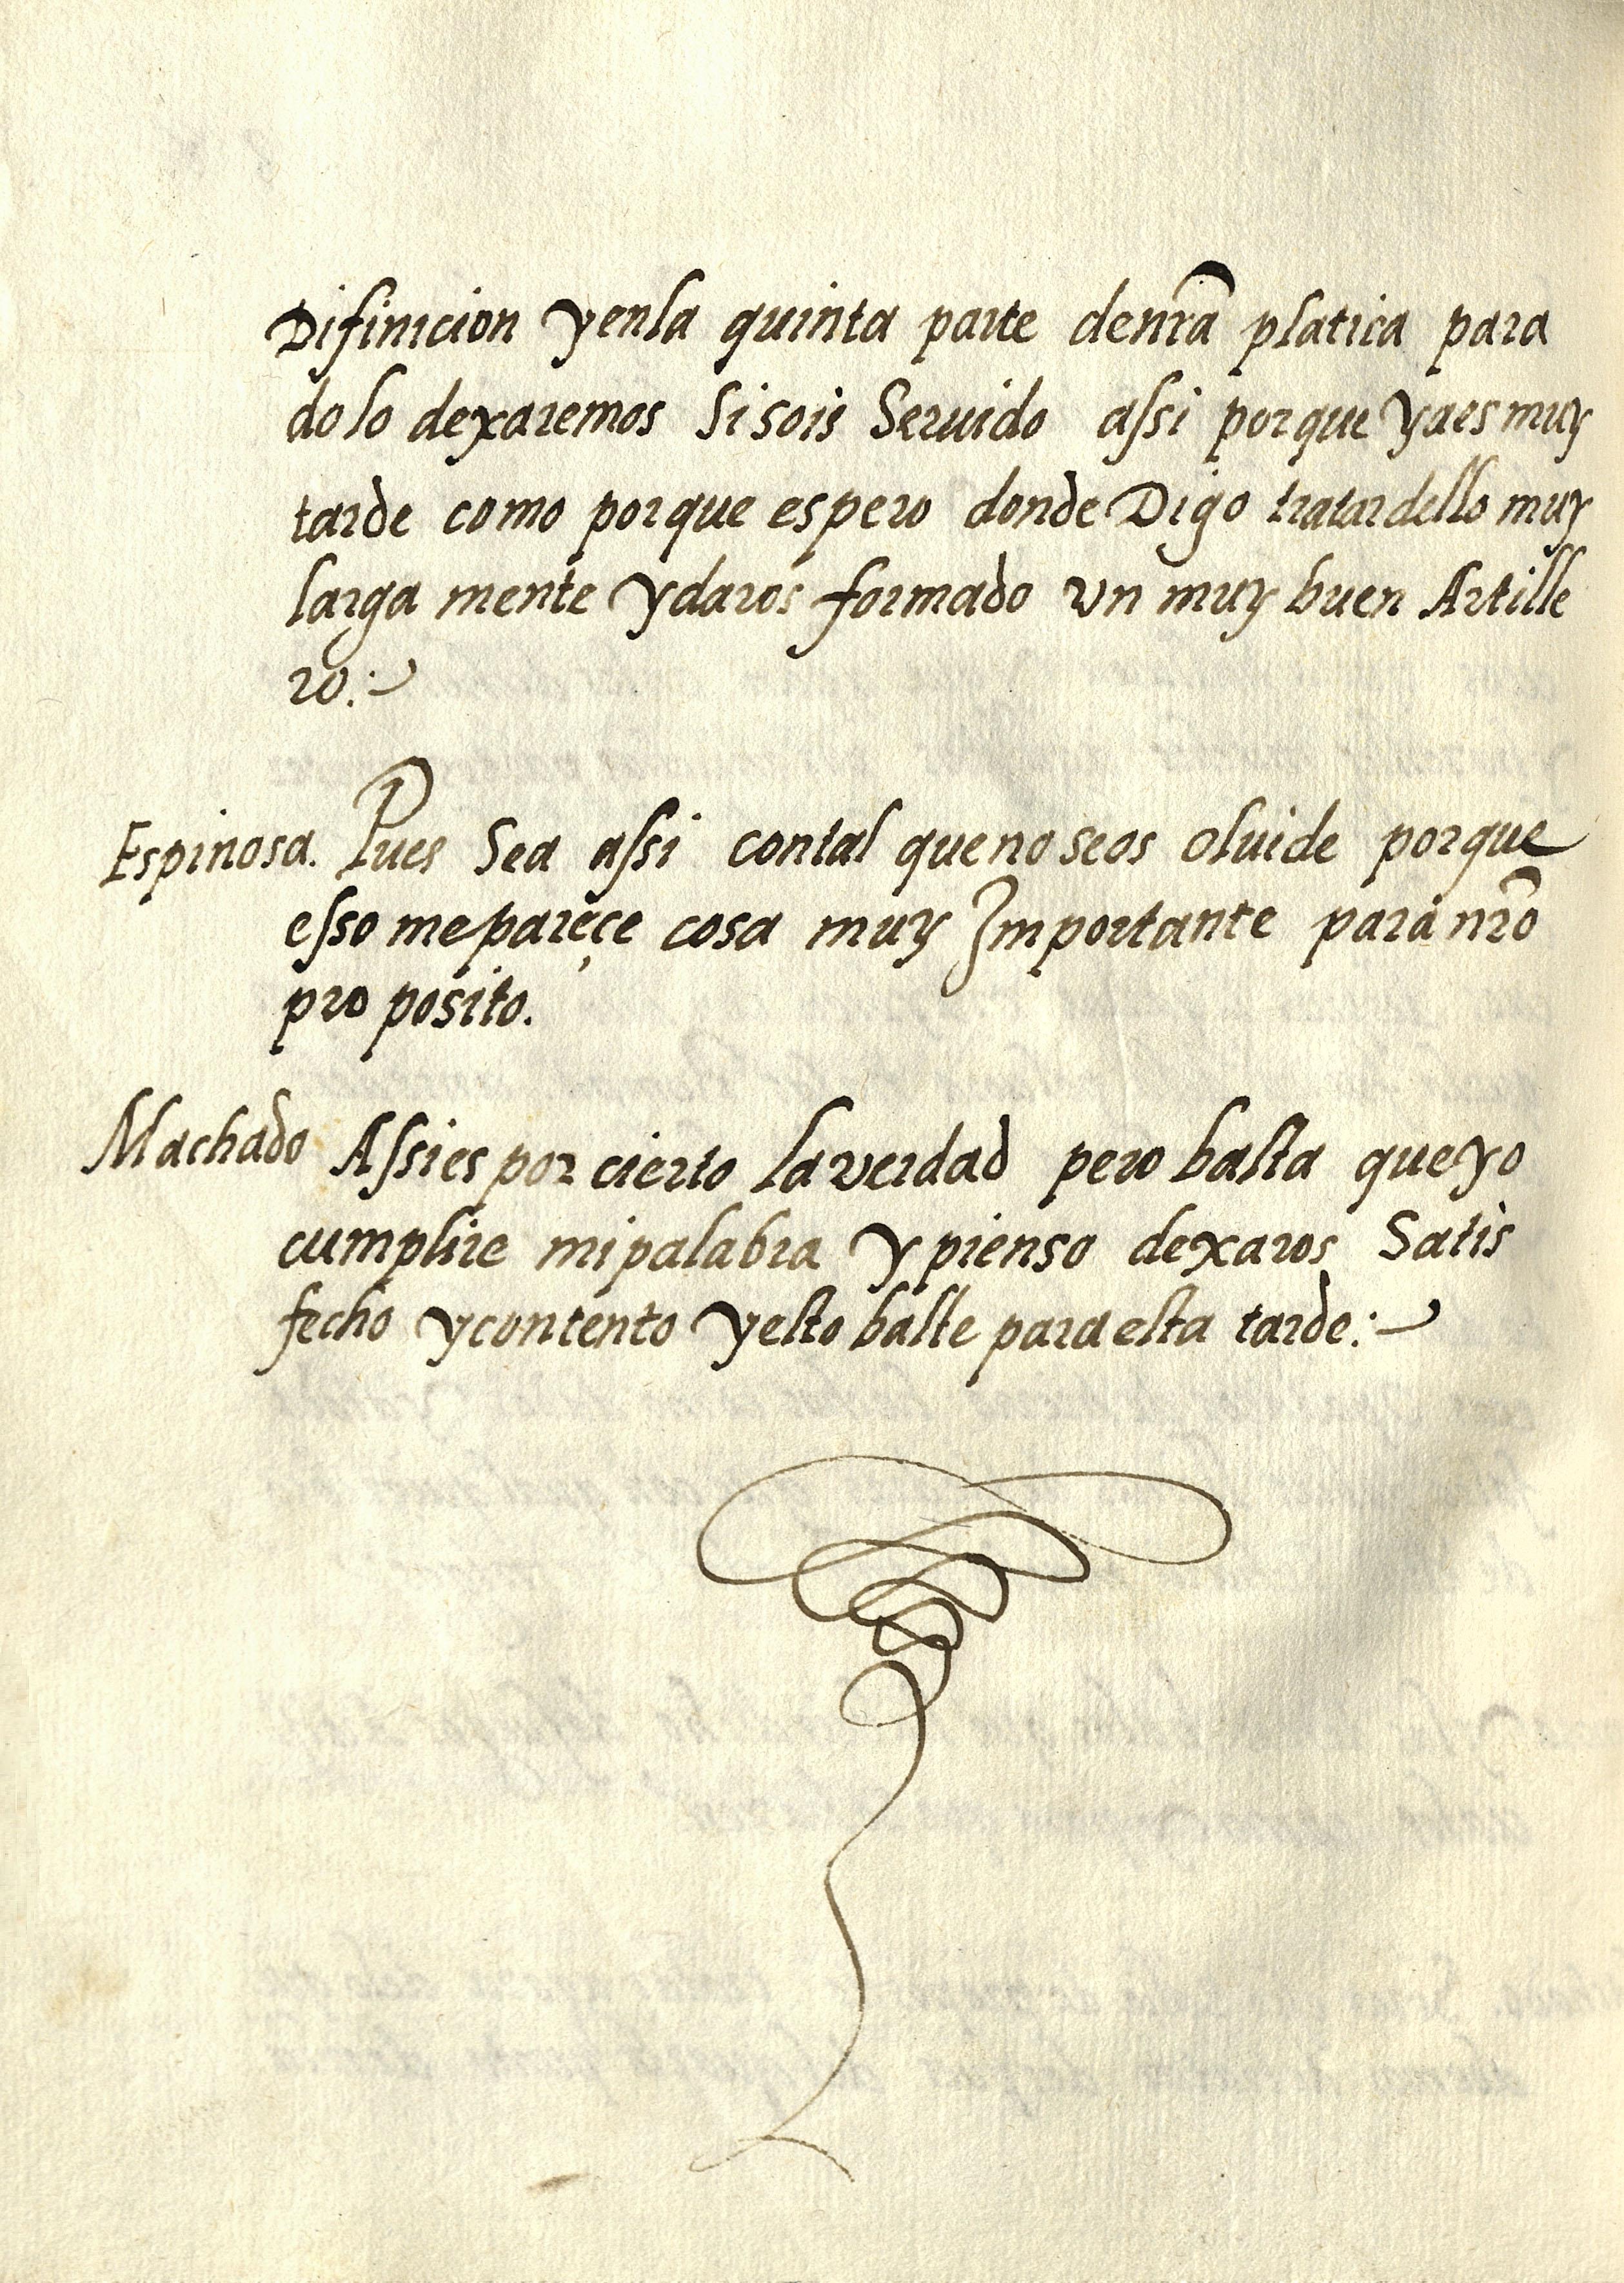 Difinicion y enla quinta parte de nrã platica para
do lo dexaremos Si sois Seruido assi porque ya es muy
tarde como porque espero donde Digo tratar dello muy
larga mente y daros formado vn muy buen Artille
ro.
Espinosa. Pues Sea assi con tal que no se os oluide porque
esso me pareçe cosa muy Importante para nrõ
pro posito.
Machado Assi es por cierto la verdad pero basta que yo
cumplire mi palabra y pienso dexaros Satis
fecho y contento y esto baste para esta tarde.